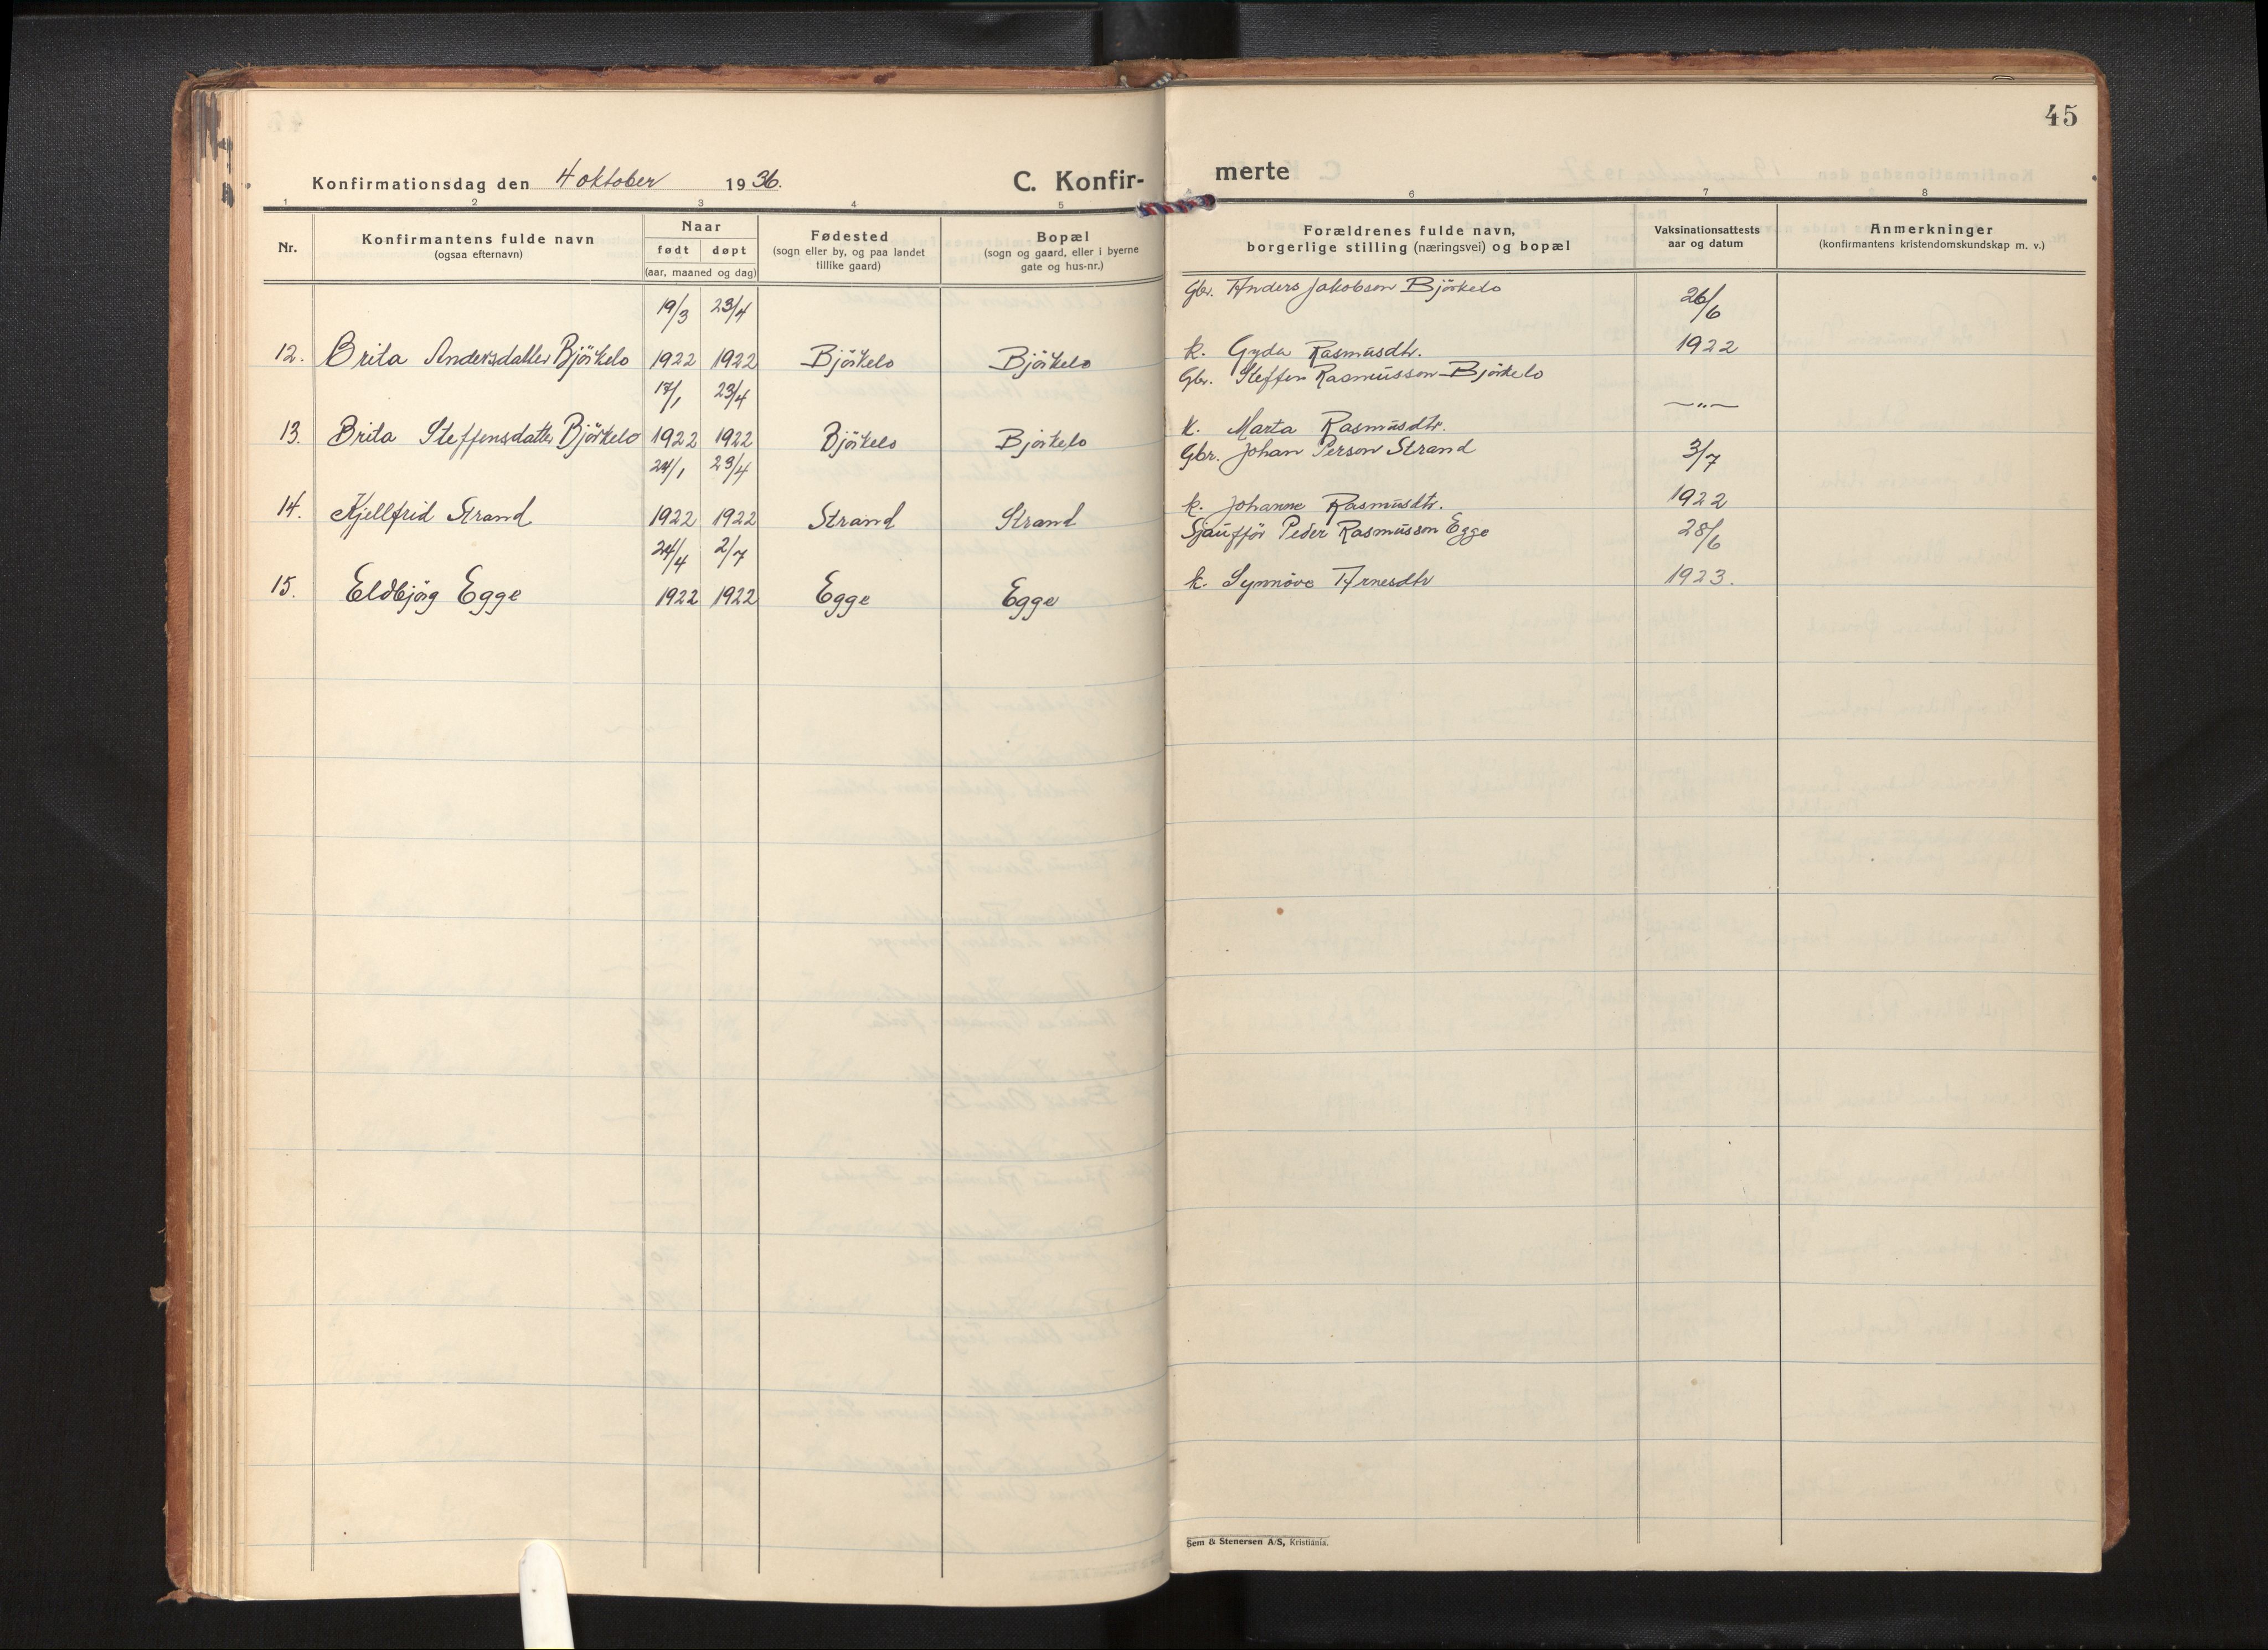 45
Konfirmationsdag den 4 oktober 1936.
C. Konfir-
merte
1 2 3 4 5 6 7 8
Nr.
Konfirmantens fulde navn
(ogsaa efternavn)
Naar
født døpt
(aar, maaned og dag)
Fødested
(sogn eller by, og paa landet
tillike gaard)
Bopæl
(sogn og gaard, eller i byerne
gate og hus-nr.)
Forældrenes fulde navn,
borgerlige stilling (næringsvei) og bopæl
Vaksinationsattests
aar og datum
Anmerkninger
(konfirmantens kristendomskundskap m. v.)
19/3 23/4 Gbr. Anders Jakobson Björkelo 26/6
12. Brita Andersdatter Björkelo 1922 1922 Björkelo Björkelo k. Gyda Rasmusdtr. 1922
17/1 23/4 Gbr. Steffen Rasmusson Björkelo
13. Brita Steffensdatter Björkelo 1922 1922 Björkelo Björkelo k. Marta Rasmusdtr. —"—
24/1 23/4 Gbr. Johan Person Strand 3/7
14. Kjellfrid Strand 1922 1922 Strand Strand k. Johanne Rasmusdtr. 1922
24/4 2/7 Sjaufför Peder Rasmusson Egge 28/6
15. Eldbjörg Egge 1922 1922 Egge Egge k. Synnöve Arnesdtr 1923.
Sem & Stenersen A/S, Kristiania.